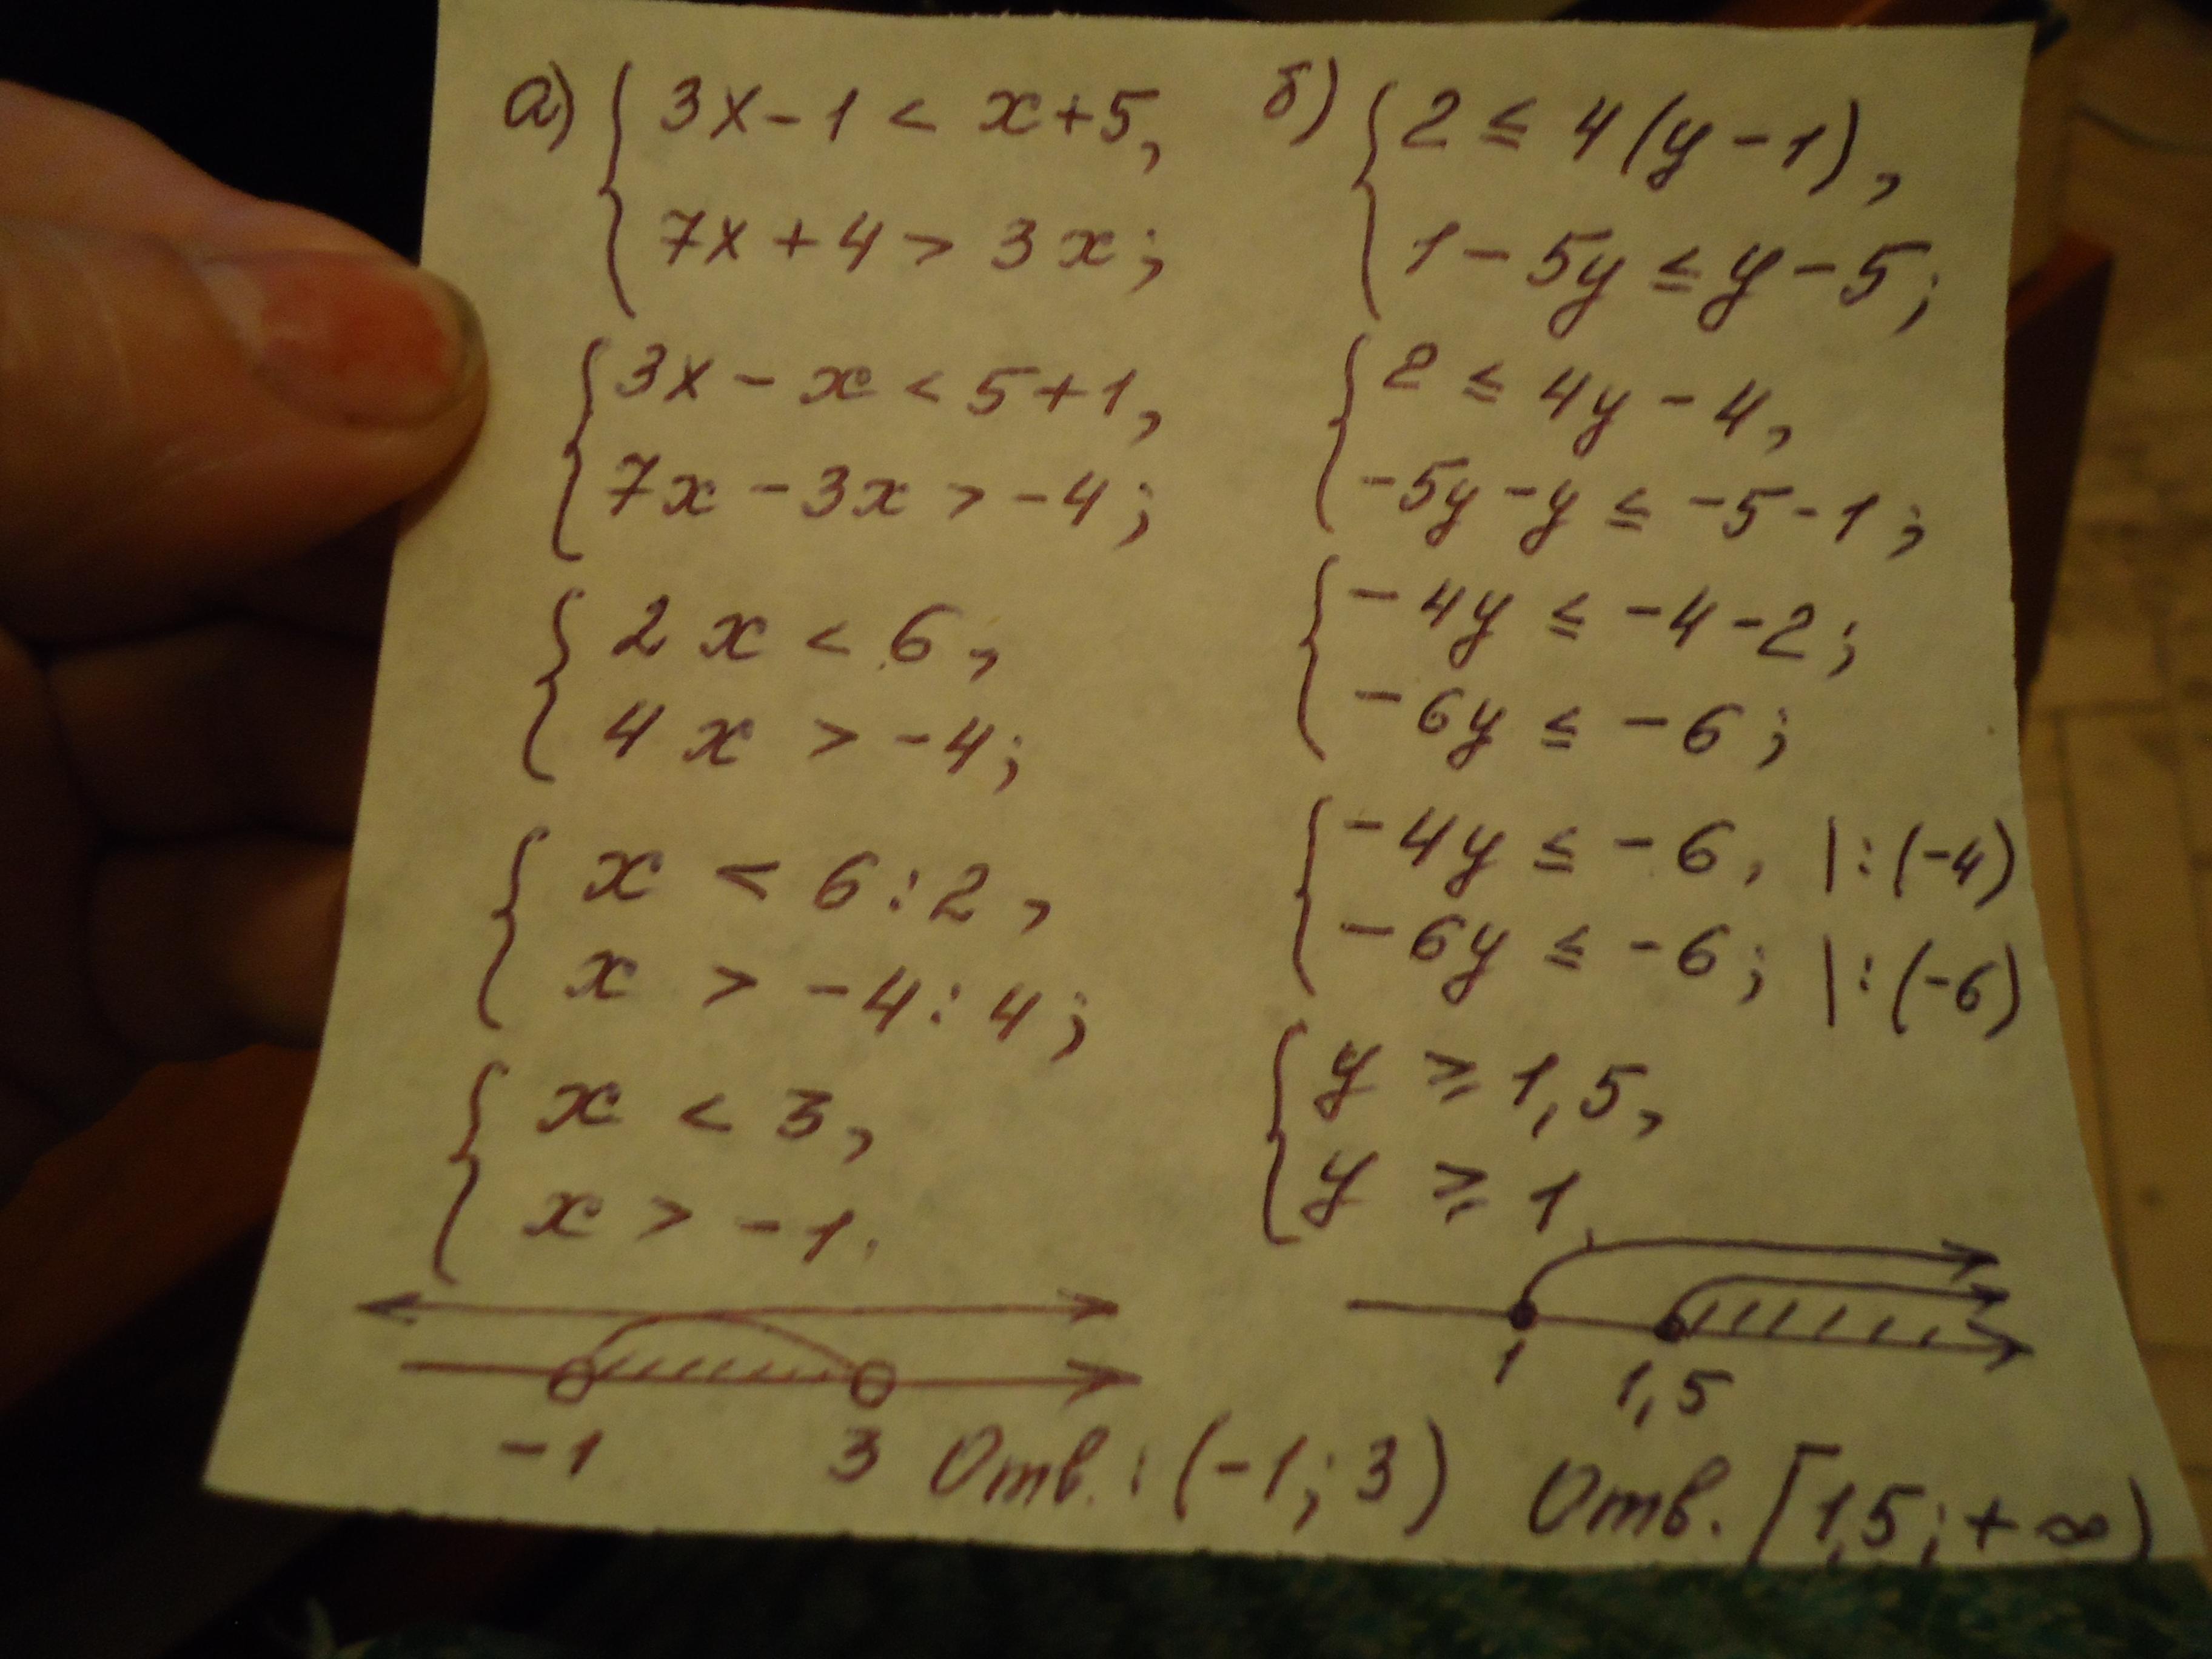 а) { 3x - 1 < x + 5,
7x + 4 > 3x;
{ 3x - x < 5 + 1,
7x - 3x > -4;
{ 2x < 6,
4x > -4;
{ x < 6 : 2,
x > -4 : 4;
{ x < 3,
x > -1.
-1 3
Отв.: (-1; 3)
б) { 2 ≤ 4(y - 1),
1 - 5y ≤ y - 5;
{ 2 ≤ 4y - 4,
-5y - y ≤ -5 - 1;
{ -4y ≤ -4 - 2;
-6y ≤ -6;
{ -4y ≤ -6, |: (-4)
-6y ≤ -6; |: (-6)
{ y ≥ 1,5,
y ≥ 1.
1 1,5
Отв. [1,5; +∞)